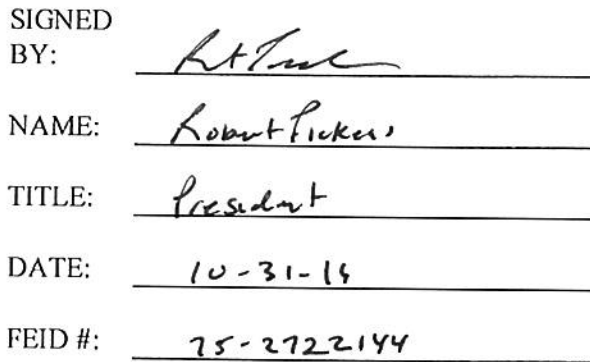 SIGNED
BY:
NAME: Robert Pickens
TITLE: President
DATE: 10-31-
FEID #: 75-2722144